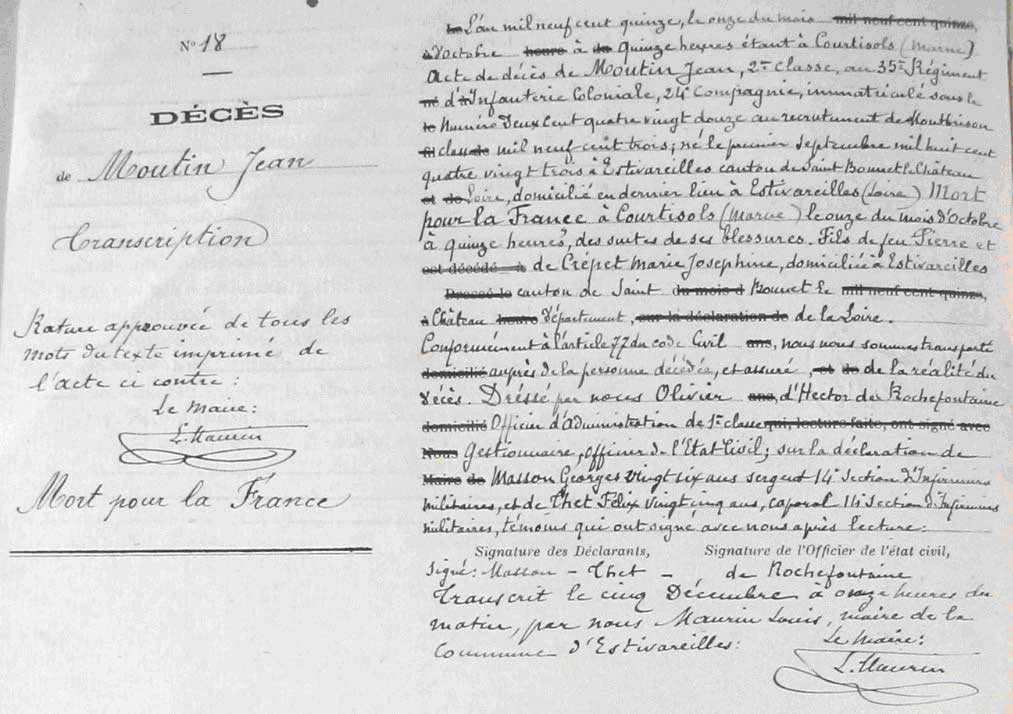 N° 18
DÉCÈS
de Moutin Jean
Transcription
Rature approuvée de tous les
mots du texte imprimé de
l'acte ci contre:
Le Maire:
L. Maurin
Mort pour la France
L'an mil neuf cent quinze, le onze du mois mil neuf cent quinze,
d'Octobre heure à du quinze heures étant à Courtisols (Marne)
Acte de décès de Moutin Jean, 2me classe, au 35me Régiment
né d'à Infanterie Coloniale, 24e Compagnie, immatriculé sous le
le Numéro Deux cent quatre vingt douze au recrutement de Montbrison
fil classe de mil neuf cent trois; né le premier Septembre mil huit cent
quatre vingt trois à Estivareilles canton de Saint Bonnet le Château
et de Loire, domicilié en dernier lieu à Estivareilles (Loire) Mort
pour la France à Courtisols (Marne) le onze du mois d'Octobre
à quinze heures, des suites de ses blessures. Fils de feu Pierre et
est décédé à de Crépet Marie Josephine, domiciliée à Estivareilles
Dressé le canton de Saint du mois d Bonnet le mil neuf cent quinze,
à Château heure Département, sur la déclaration de de la Loire.
Conformément à l'article 77 du code Civil ans, nous nous sommes transporté
domicilié auprès de la personne décédée, et assuré, et de de la réalité du
décès. Dréssé par nous Olivier ans, d'Hector de Rochefontaine
domicilié Officier d'Administration de 1re classe qui, lecture faite, ont signé avec
Nous Gestionnaire, officier de l'Etat Civil; sur la déclaration de
Maire de Masson Géorges vingt six ans sergent 14e Section d'Infirmiers
militaires, et de Thet Félix vingt cinq ans, caporal 14 Section d'Infirmiers
militaires, témoins qui ont signé avec nous après lecture:
Signature des Déclarants, Signature de l'Officier de l'état civil,
Signé: Masson - Thet - de Rochefontaine
Transcrit le cinq Décembre à onze heures du
matin, par nous Maurin Louis, maire de la
Commune d'Estivareilles: Le Maire:
L. Maurin